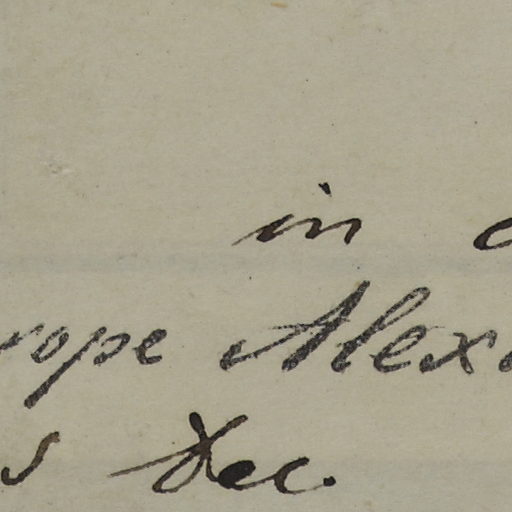 in
rope Alex
s Dec.